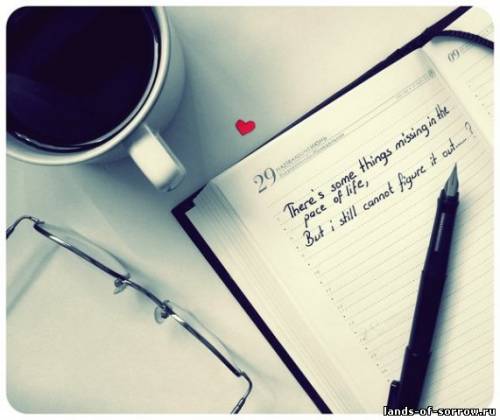 29
09
There's some things missing in the
pace of life,
But i still cannot figure it out.....?
lands-of-sorrow.ru